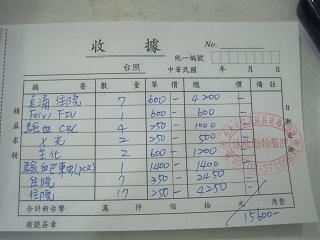 收據
No.
統一編號
台照 中華民國 年 月 日
摘要 數量 單價 總價 備註
點滴住院 7 600- 4200-
FeLV/FIV 1 600- 600-
驗血CBC 4 250- 1000-
X光 2 250- 500-
生化 2 600- 1200-
驗血巴東虫(PCR) 1 1400- 1400-
住院 7 350- 2450-
住院 17 250- 4250-
合計新台幣 萬 仟 佰 拾 元 角整
15600-
商號簽章